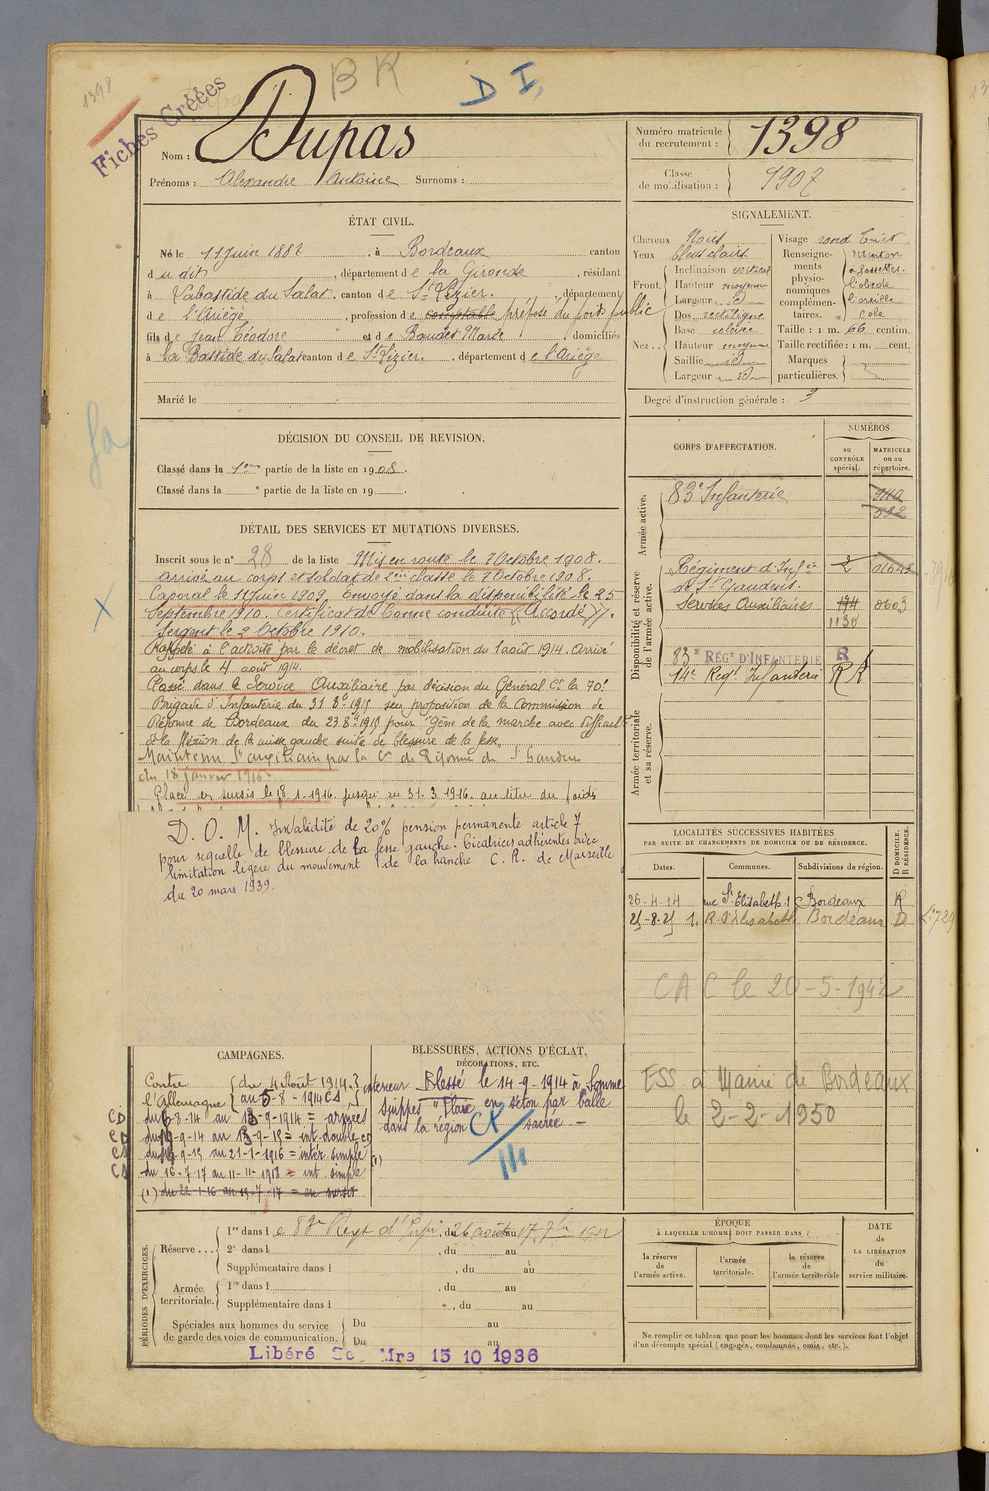 1398
Fiches Créées
BK
D I.
Nom : Dupas
Prénoms : Alexandre Antoine Surnoms :
Numéro matricule du recrutement : 1398
Classe de mobilisation : 1907
ÉTAT CIVIL.
Né le 11 Juin 1887, à Bordeaux canton
dudit, département de la Gironde, résidant
à Labastide du Salat, canton de St Lizier, département
de l'Ariège, profession de comptable préposé du poids public
fils de Jean Théodore et de Baudet Marie domiciliés
à la Bastide du Salat canton de St Lizier, département de l'Ariège
Marié le
SIGNALEMENT.
Cheveux Noirs
Yeux bleus clairs
Front. Inclinaison vertical
Hauteur moyen
Largeur id
Nez Dos rectiligne
Base relevée
Hauteur moyenne
Saillie id
Largeur id
Visage rond
Renseignements physionomiques complémentaires.
menton à fossette.
Taille : 1 m. 66 centim.
Taille rectifiée : 1 m. cent.
Marques particulières.
Degré d'instruction générale : 3
DÉCISION DU CONSEIL DE REVISION.
Classé dans la 1ère partie de la liste en 1908.
Classé dans la e partie de la liste en 19
DÉTAIL DES SERVICES ET MUTATIONS DIVERSES.
Inscrit sous le n° 28 de la liste Mis en route le 7 Octobre 1908.
arrivé au corps et soldat de 2ème classe le 7 Octobre 1908.
Caporal le 11 Juin 1909. Envoyé dans la disponibilité le 25
Septembre 1910. Certificat de bonne conduite "Accordé".
Sergent le 2 Octobre 1910.
Rappelé à l'activité par le décret de mobilisation du 1 août 1914. Arrivé
au corps le 4 août 1914.
Classé dans le Service Auxiliaire par décision du Général Ct la 70e
Brigade d'Infanterie du 31.8.1915 sur proposition de la Commission de
Réforme de Bordeaux du 23 8 1915 pour "Gêne de la marche avec
de la flexion de la cuisse gauche suite de blessure de la fesse.
Maintenu Sce auxiliaire par la Con de Réforme de St Gaudens
du 18 janvier 1916.
Placé en sursis le 18.1.1916 jusqu'au 31.3.1916. au titre du poids
D. O. M. Invalidité de 20% pension permanente article 7
pour sequelle de blessure de la fesse gauche. Cicatrices adhérentes avec
limitation légère du mouvement de la hanche C. R. de Marseille
du 20 mars 1939.
CORPS D'AFFECTATION.
NUMÉROS
au CONTRÔLE spécial.
MATRICULE ou au répertoire.
Armée active.
83e Infanterie
Disponibilité et réserve de l'armée active.
Régiment d'Infie de St Gaudens. 2
Services Auxiliaires 194 0603
1130
83E RÉGT D'INFANTERIE R
14e Regt Infanterie
Armée territoriale et sa réserve.
LOCALITÉS SUCCESSIVES HABITÉES
PAR SUITE DE CHANGEMENTS DE DOMICILE OU DE RÉSIDENCE.
Dates. Communes. Subdivisions de région. D DOMICILE. R RÉSIDENCE.
26-4-14 rue St Elisabeth 1 Bordeaux R
25-8-25 1. R. St Elisabeth Bordeaux D
CAC le 20-5-1942
ESS à Mairie de Bordeaux
le 2-2-1950
CAMPAGNES.
Contre l'Allemagne du 4 Août 1914 au 5-8-1914 CS intérieur
du 6-8-14 au 13-9-1914 = armées
-9-14 au 13-9-15 = int double
-9-15 au 21-1-1916 = intér simple (1)
du 16-7-17 au 11-11-1918 = int simple
(1) du 22-1-16 au 15-7-17 = en sursis
BLESSURES, ACTIONS D'ÉCLAT,
DÉCORATIONS, ETC.
Blessé le 14-9-1914 à Somme
Suippes "Plaie en séton par balle
dans la région sacrée –
PÉRIODES D'EXERCICES.
Réserve... 1re dans le 83e Regt d'Infie, du 26 août au 17 7bre 1912
2e dans l , du au
Supplémentaire dans l , du au
Armée territoriale. 1re dans l , du au
Supplémentaire dans l , du au
Spéciales aux hommes du service de garde des voies de communication. Du au
Du au
Libéré Sce Mre 15 10 1936
ÉPOQUE
À LAQUELLE L'HOMME DOIT PASSER DANS :
la réserve de l'armée active.
l'armée territoriale.
la réserve de l'armée territoriale
DATE DE LA LIBÉRATION du service militaire.
Ne remplir ce tableau que pour les hommes dont les services font l'objet
d'un décompte spécial (engagés, condamnés, omis, etc.).